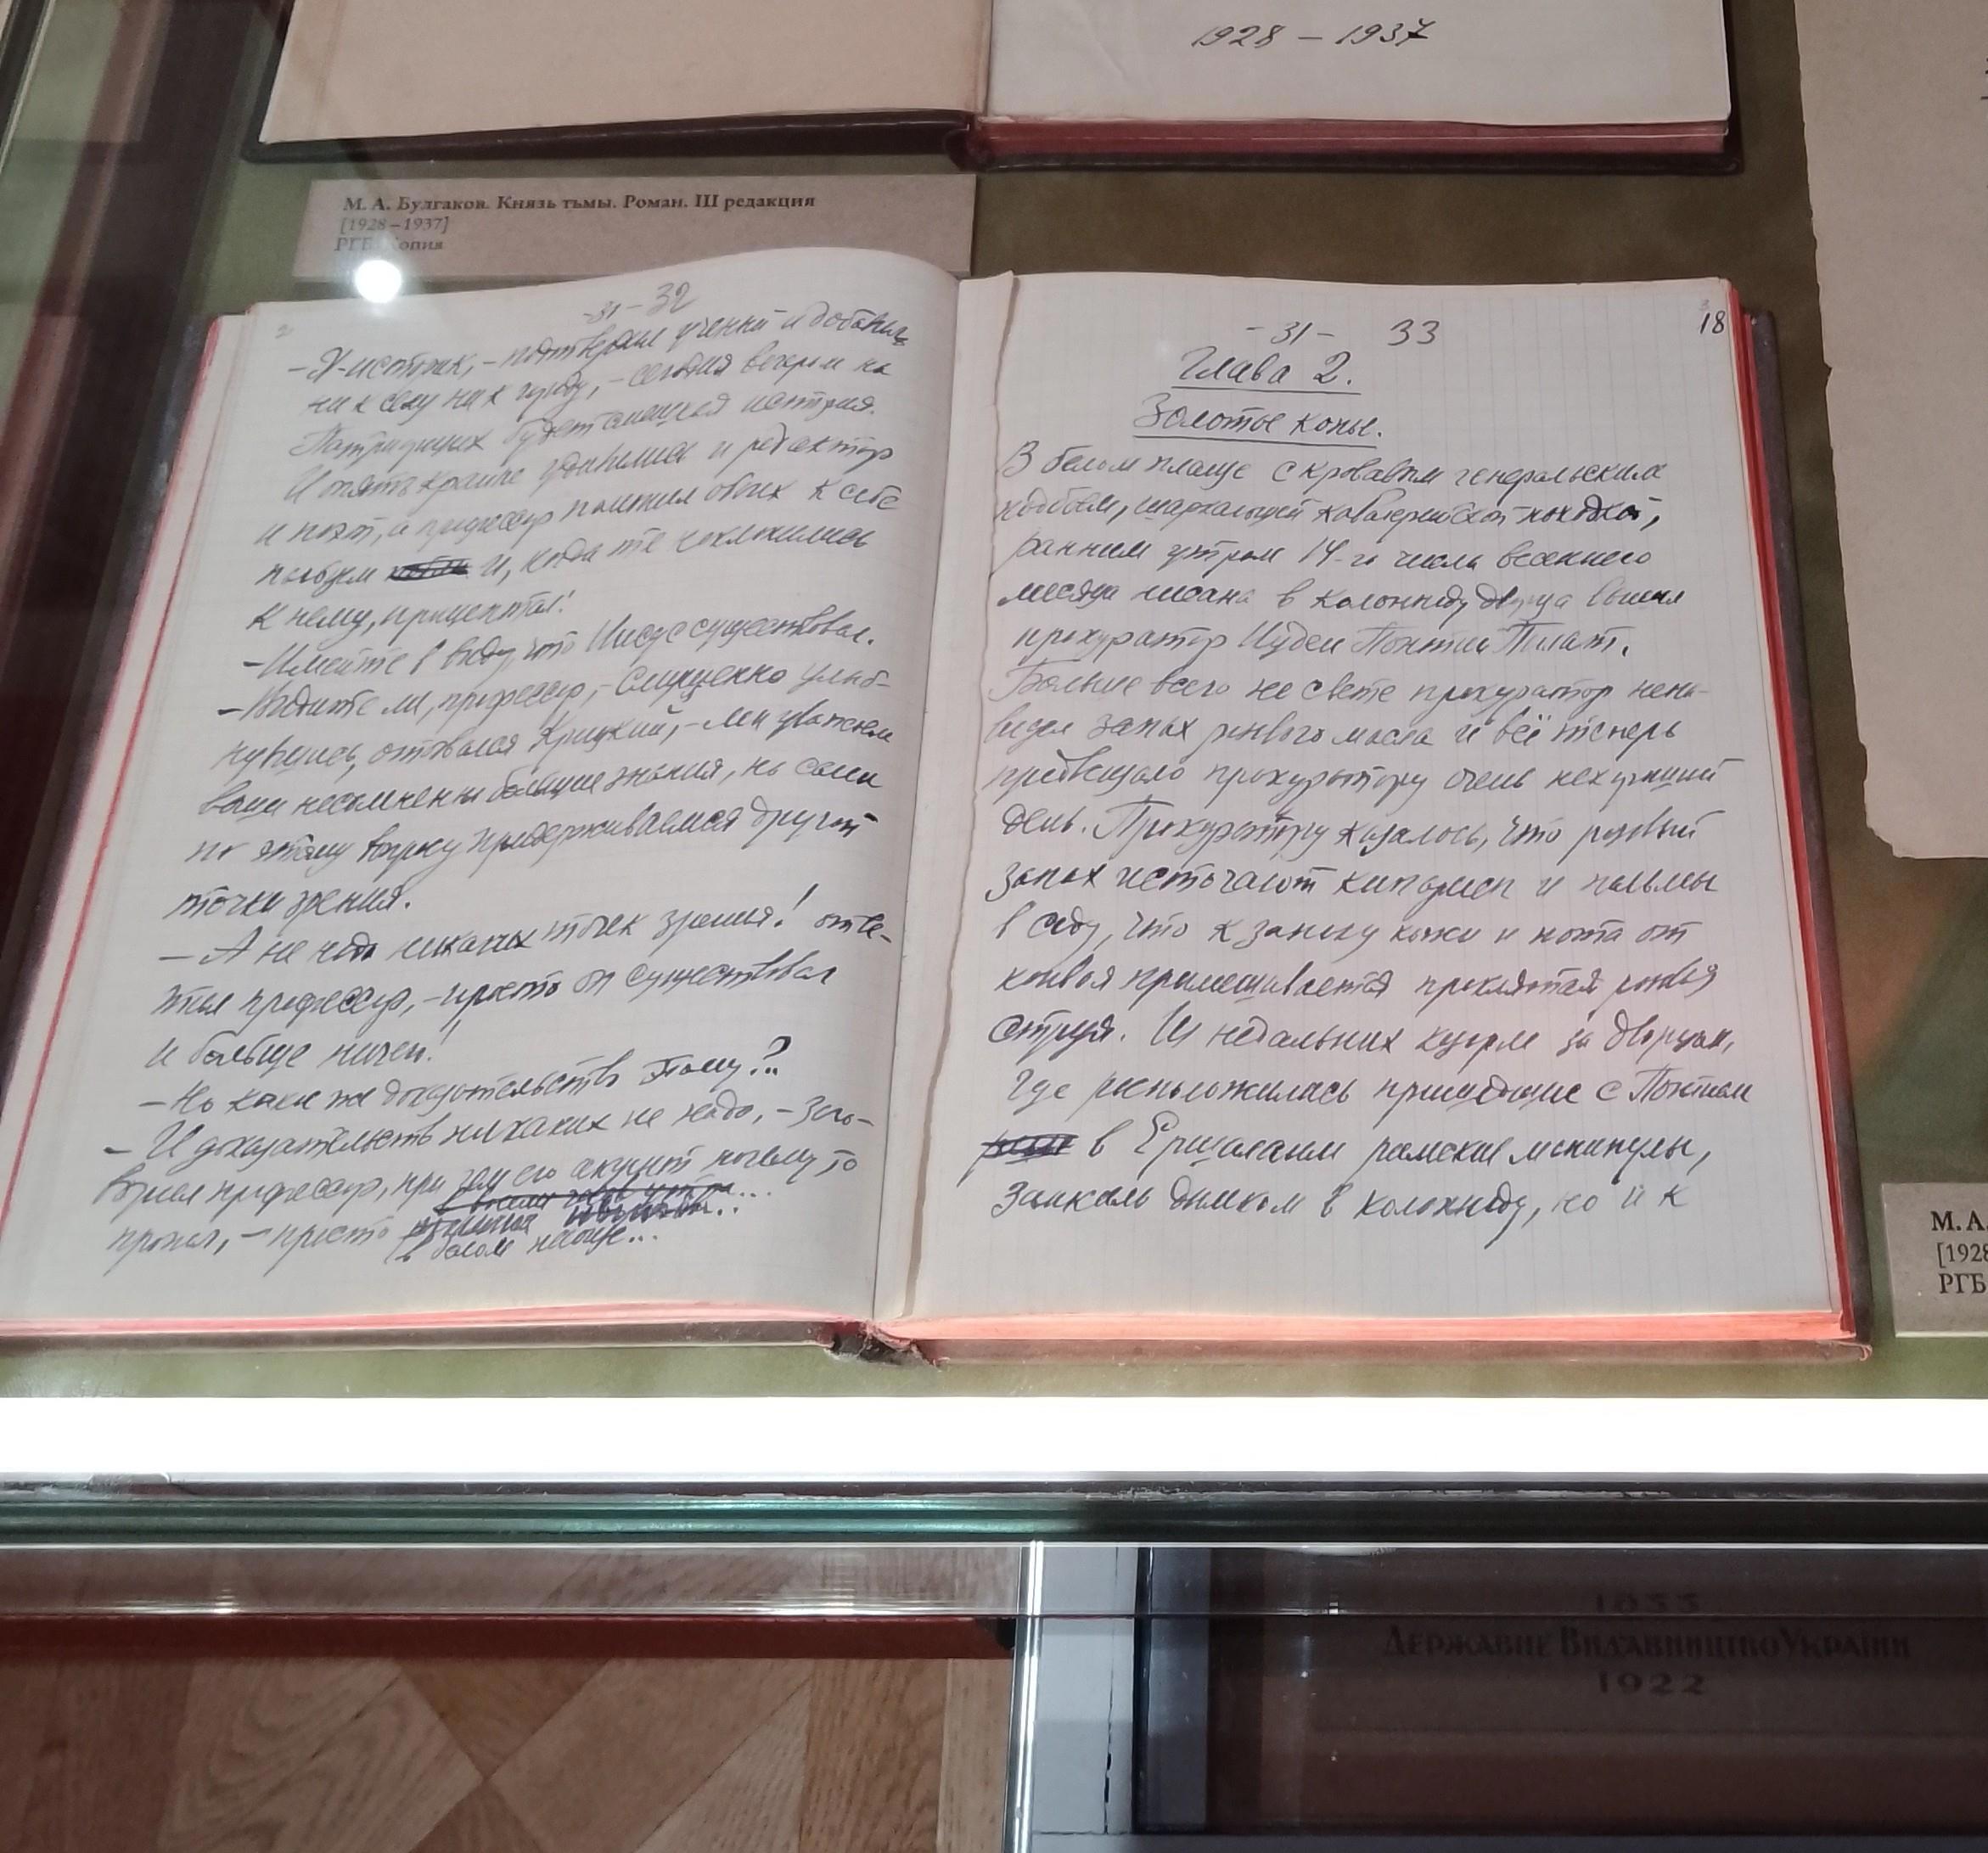 1928 – 1937
М. А. Булгаков. Князь тьмы. Роман. III редакция
[1928–1937]
РГБ. Копия
-31- 32
– Я – историк, – подтвердил ученый и добавил
ни к селу ни к городу, – сегодня вечером на
Патриарших будет смешная история.
И опять крайне удивились и редактор
и поэт, а профессор поманил обоих к себе
пальцем и, когда те наклонились
к нему, прошептал:
– Имейте в виду, что Иисус существовал.
– Видите ли, профессор, – смущенно улыб-
нувшись, отозвался Крицкий, – мы уважаем
ваши несомненно большие знания, но сами
по этому вопросу придерживаемся другой
точки зрения.
– А не надо никаких точек зрения! отве-
тил профессор, – просто он существовал
и больше ничего!
– Но какие же доказательства этому?..
– И доказательств никаких не надо, – заго-
ворил профессор, при чем его акцент почему то
пропал, – просто
в белом плаще...
-31- 33
18
Глава 2.
Золотые копья.
В белом плаще с кровавым генеральским
подбоем, шаркающей кавалерийской походкой,
ранним утром 14-го числа весеннего
месяца нисана в колоннаду дворца вышел
прокуратор Иудеи Понтий Пилат.
Больше всего на свете прокуратор нена-
видел запах розового масла и всё теперь
предвещало прокуратору очень нехороший
день. Прокуратору казалось, что розовый
запах источают кипарисы и пальмы
в саду, что к запаху кожи и пота от
конвоя примешивается проклятая розовая
струя. Из недальних казарм за дворцом,
где расположились пришедшие с Понтием
в Ершалаим римские манипулы,
заносило дымком в колоннаду, но и к
М. А.
[1928
РГБ
Державне Видавництво України
1922